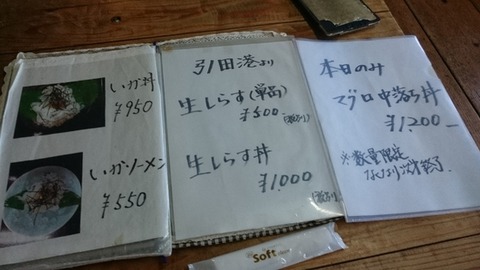 いか丼
¥950
いかソーメン
¥550
引田港より
生しらす(単品)
¥500
生しらす丼
¥1,000
本日のみ
マグロ中落ち丼
¥1,200ー
※数量限定
なくなり次第終了.
Soft